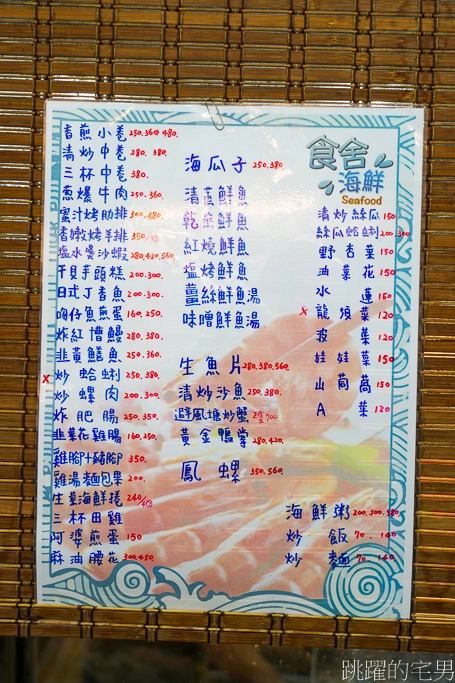 香煎小卷 250.360 480.
清炒中卷 280. 380.
三杯中卷 380.
蔥爆牛肉 250.360.
蜜汁烤肋排 300.480.
香嫩烤羊排 350/
塩水燙沙蝦 280.420.560
干貝芋頭糕 200.300.
日式丁香魚 200.300.
吻仔魚煎蛋 160.250.
炸紅糟鰻 280.380.
韭黃鱔魚 250.360.
x炒蛤蜊 250.380
炒螺肉 200.300
炸肥腸 250.350.
韭菜花雞腸 160.250.
雞腳+豬腳 350.
雞湯麵包果 200.
生菜海鮮捲 240/4份
三杯田雞
阿婆煎蛋 150
麻油腰花 300.450.
海瓜子 250.380
清蒸鮮魚
乾煎鮮魚
紅燒鮮魚
塩烤鮮魚
薑絲鮮魚湯
味噌鮮魚湯
生魚片 280.380.560.
清炒沙魚 250.380.
避風塘炒蟹
黃金鴨掌 280.420.
鳳螺 350.560.
食舍
海鮮
Seafood
清炒絲瓜 150
絲瓜蛤蜊 200.300
野杏菜 150
油菜花 150
水蓮 150
x龍須菜 120
菠菜 120
娃娃菜 150
山茼蒿 150
A菜 120
海鮮粥 200.300.500.
炒飯 70.140
炒麵 70.140
跳躍的宅男